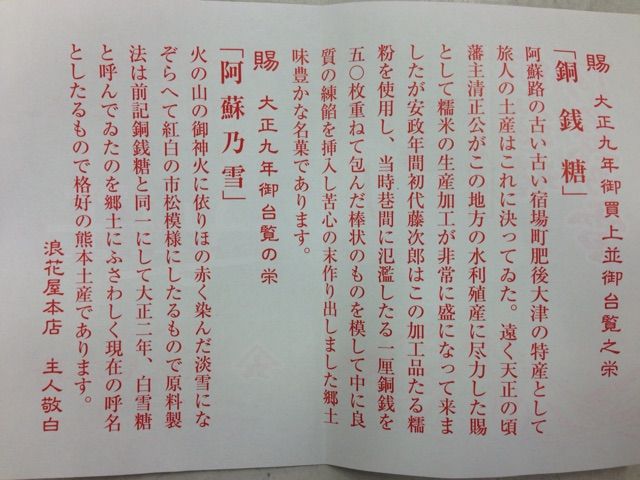 賜　大正九年御買上並御台覧之栄
「銅銭糖」
阿蘇路の古い古い宿場町肥後大津の特産として
旅人の土産はこれに決ってゐた。遠く天正の頃
藩主清正公がこの地方の水利殖産に尽力した賜
として糯米の生産加工が非常に盛になって来ま
したが安政年間初代藤次郎はこの加工品たる糯
粉を使用し、当時巷間に氾濫したる一厘銅銭を
五〇枚重ねて包んだ棒状のものを模して中に良
質の練餡を挿入し苦心の末作り出しました郷土
味豊かな名菓であります。
賜　大正九年御台覧の栄
「阿蘇乃雪」
火の山の御神火に依りほの赤く染んだ淡雪にな
ぞらへて紅白の市松模様にしたるもので原料製
法は前記銅銭糖と同一にして大正二年、白雪糖
と呼んでゐたのを郷土にふさわしく現在の呼名
としたるもので格好の熊本土産であります。
浪花屋本店　主人敬白